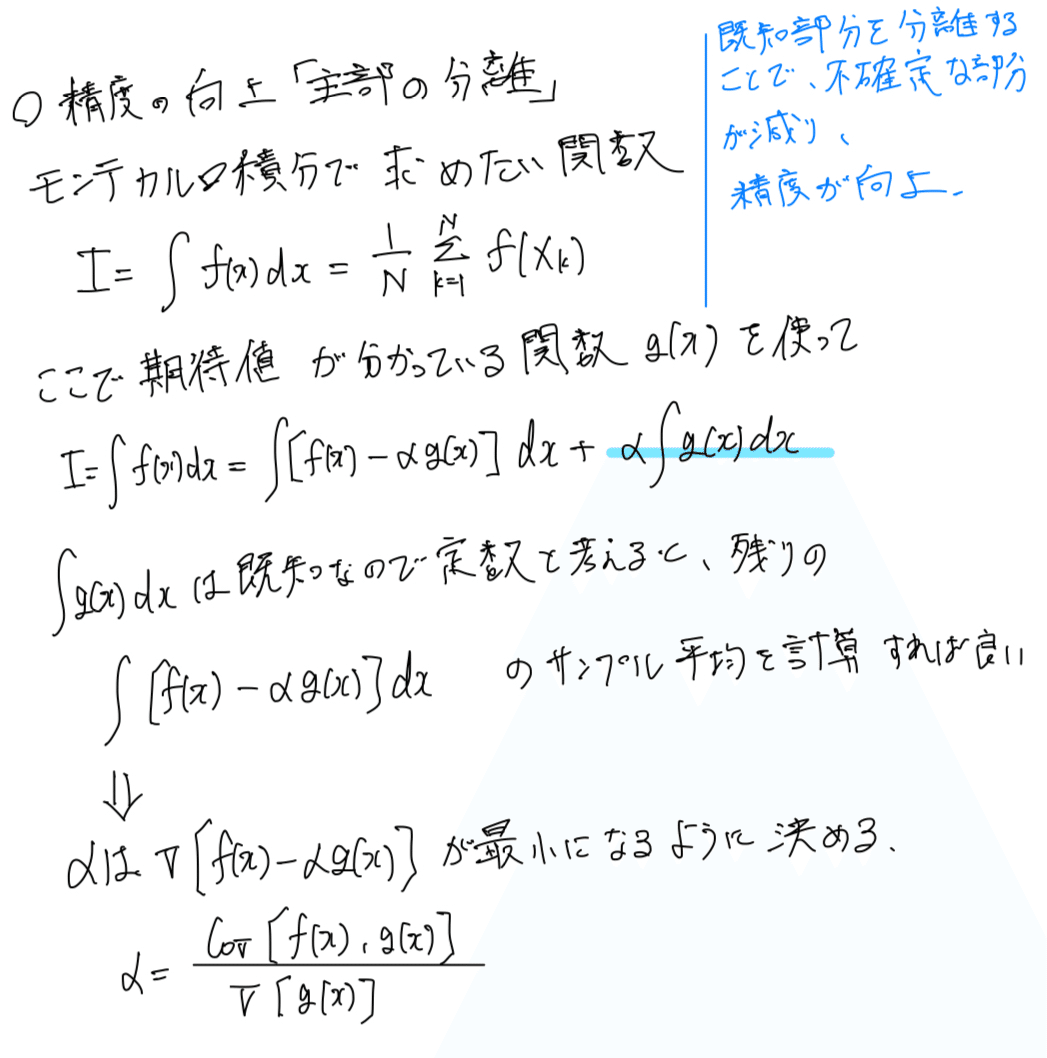 ○ 精度の向上「主部の分離」
モンテカルロ積分で求めたい関数
I = ∫ f(x) dx = 1/N Σ_{k=1}^{N} f(X_k)
既知部分を分離する
ことで、不確定な部分
が減り、
精度が向上.
ここで期待値が分かっている関数 g(x) を使って
I = ∫ f(x) dx = ∫ [f(x) - αg(x)] dx + α∫ g(x) dx
∫ g(x) dx は既知なので定数と考えると、残りの
∫ [f(x) - αg(x)] dx のサンプル平均を計算すれば良い
⇓
αは V[f(x) - αg(x)] が最小になるように決める.
α = Cov[f(x), g(x)] / V[g(x)]